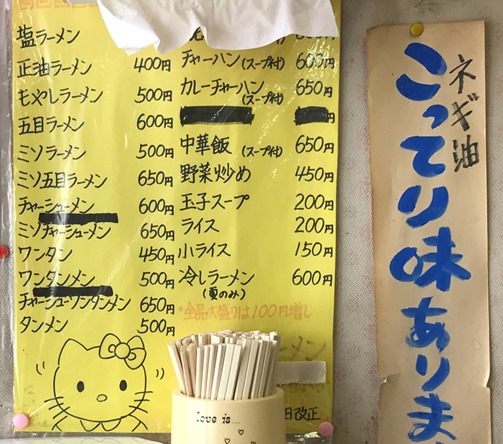 塩ラーメン
正油ラーメン 400円
もやしラーメン 500円
五目ラーメン 600円
ミソラーメン 500円
ミソ五目ラーメン 650円
チャーシューメン 600円
ミソチャーシューメン 650円
ワンタン 450円
ワンタンメン 500円
チャーシューワンタンメン 650円
タンメン 500円
チャーハン(スープ付) 600円
カレーチャーハン(スープ付) 650円
中華飯(スープ付) 650円
野菜炒め 450円
玉子スープ 200円
ライス 200円
小ライス 150円
冷しラーメン 600円
(夏のみ)
*全品大盛りは100円増し
日改正
love is...
ネギ油
こってり味ありま